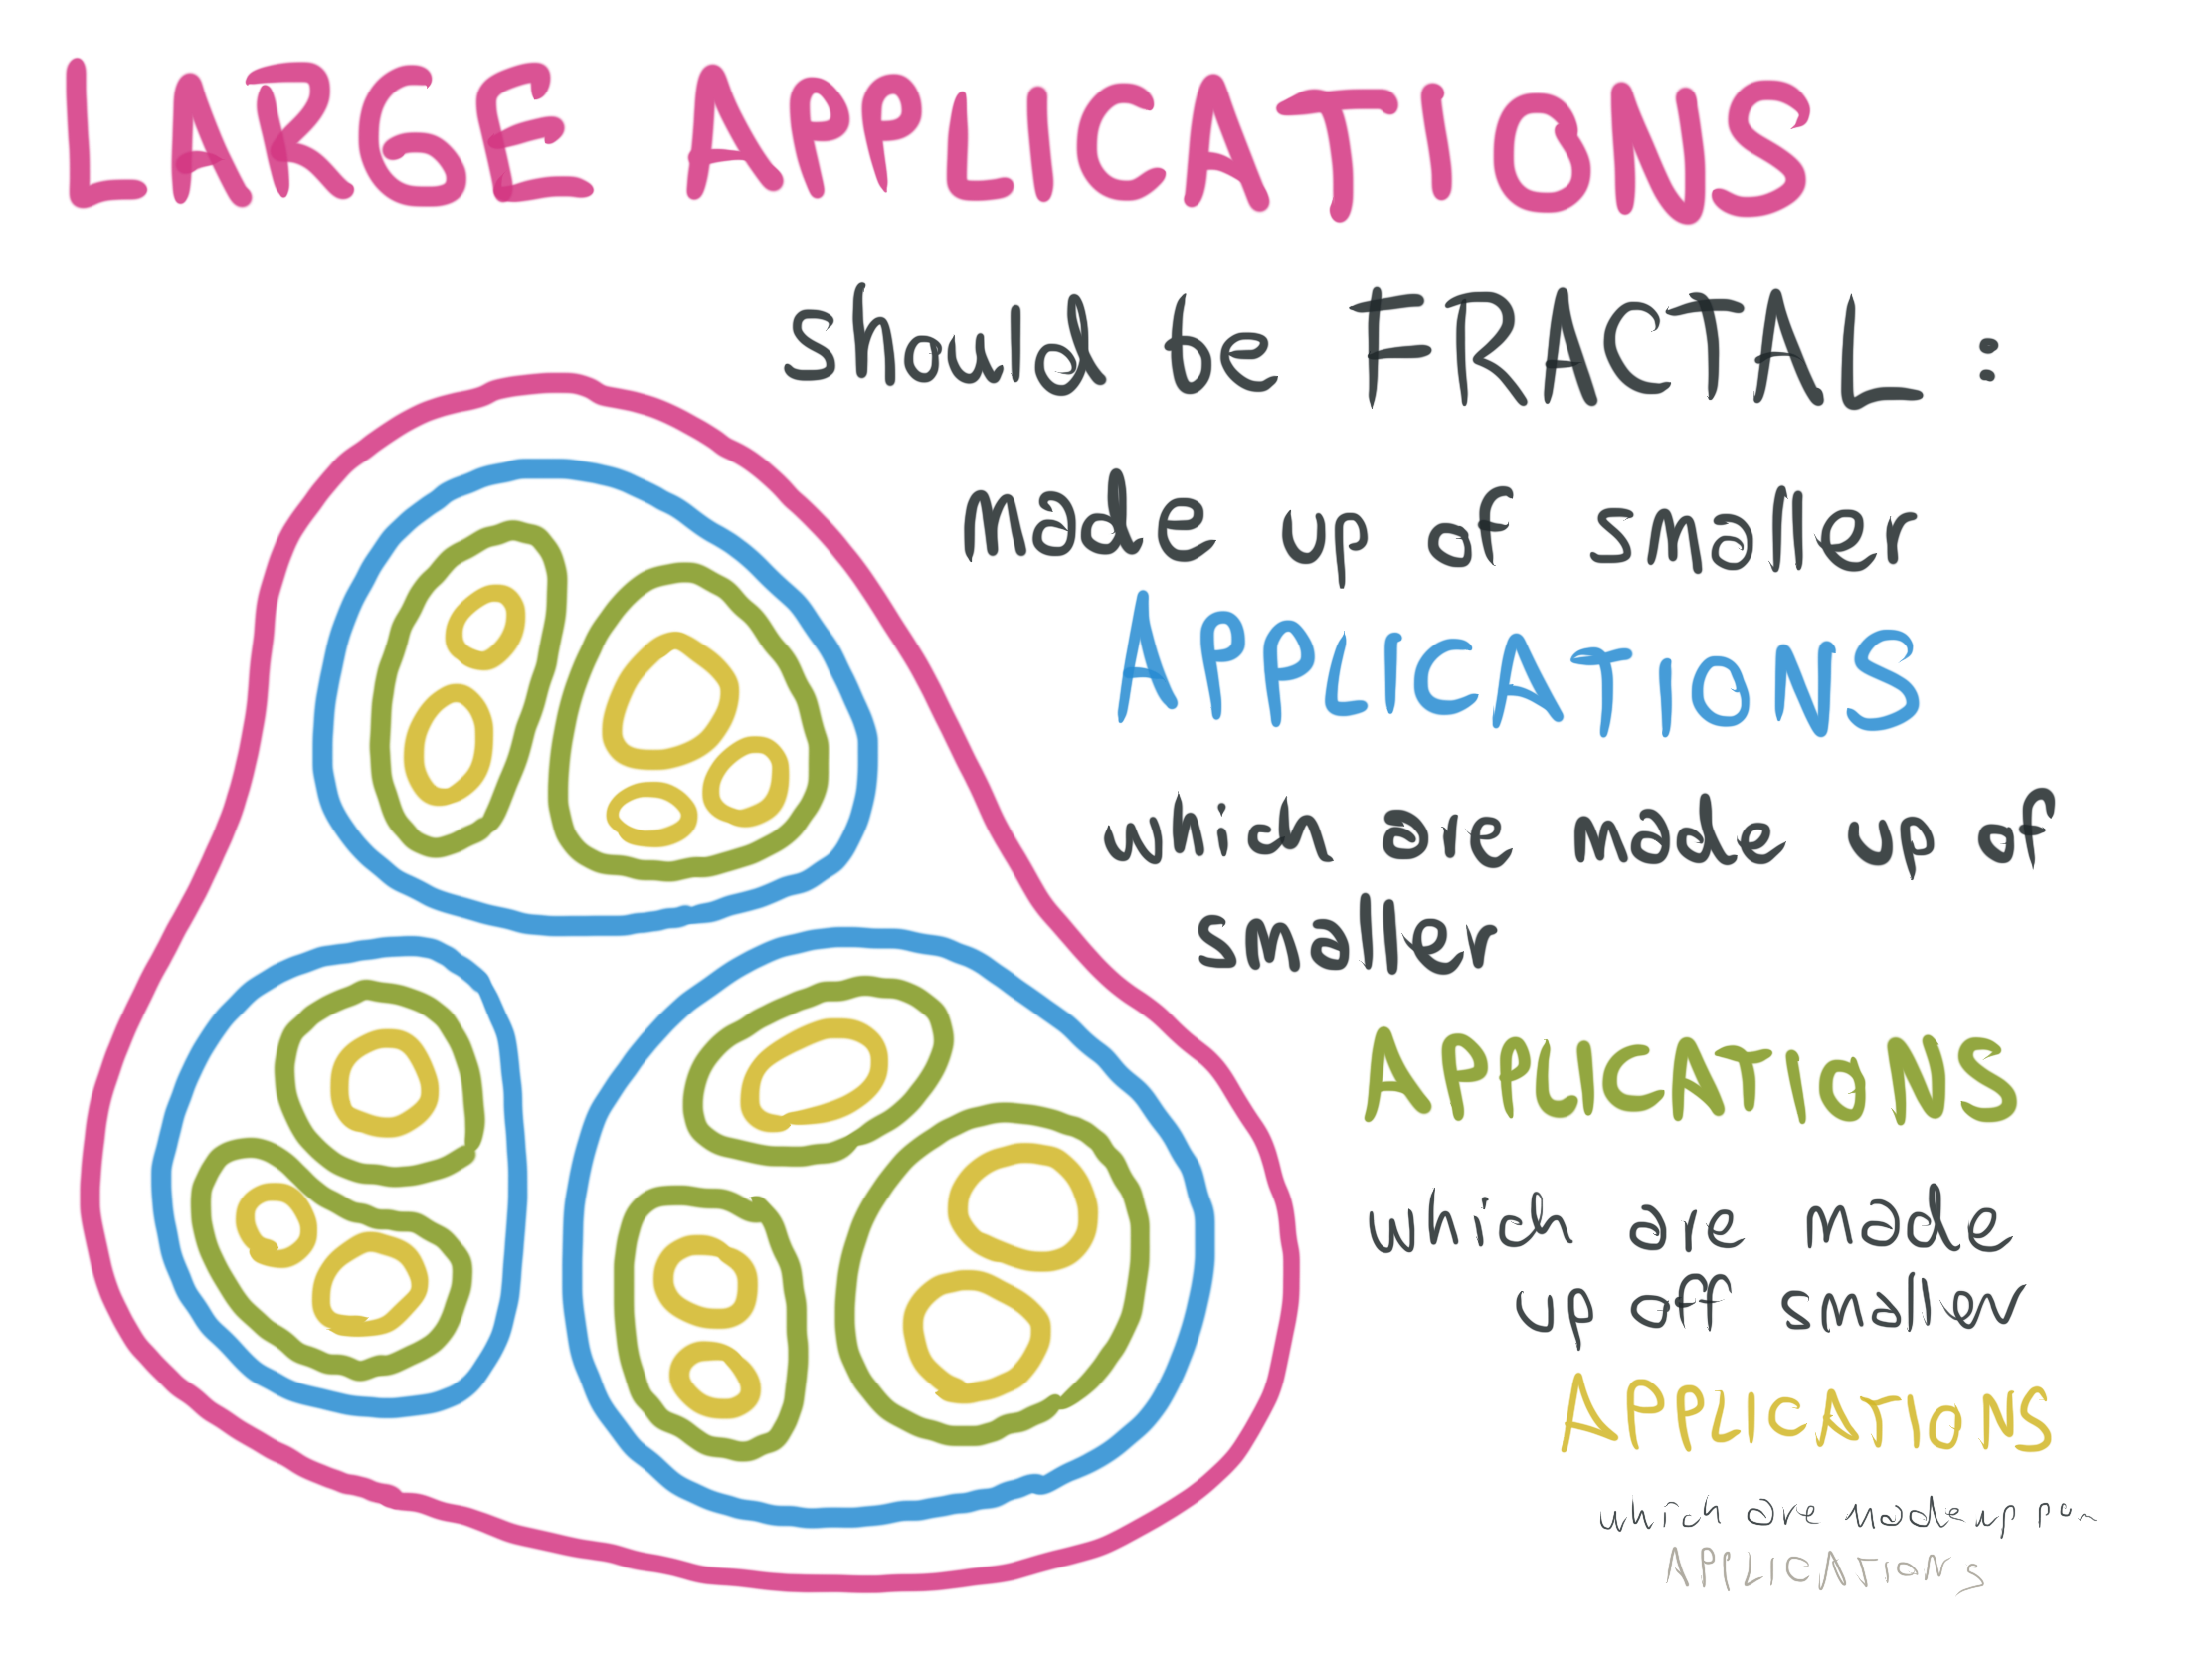 LARGE APPLICATIONS
should be FRACTAL:
made up of smaller
APPLICATIONS
which are made up of
smaller
APPLICATIONS
which are made
up off smaller
APPLICATIONS
which are made up
APPLICATIONS